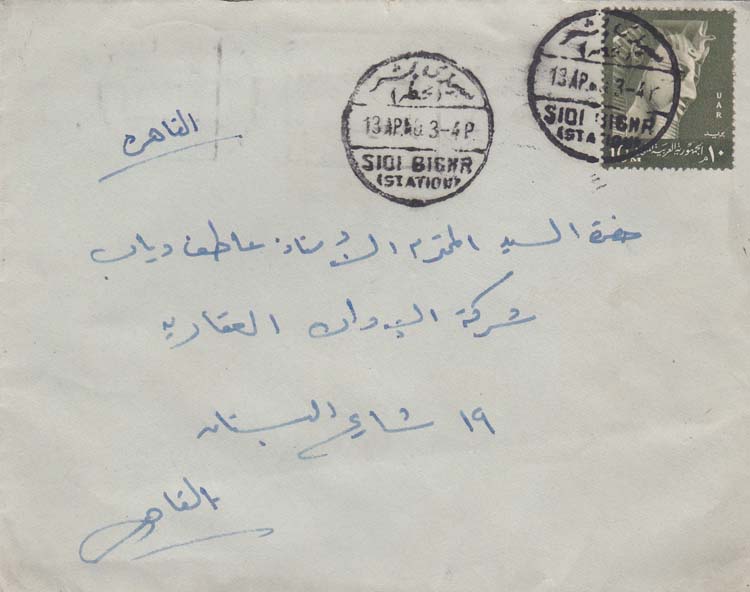 القاهرة
سيدى بشر
(محطة)
13 AP 3-4 P
SIDI BISHR
(STATION)
سيدى بشر
(محطة)
13 AP 3-4 P
SIDI BISHR
(STATION)
UAR
بريد
١٠ م
الجمهورية العربية
حضرة السيد المحترم الأستاذ عاطف دياب
شركة العقارية
١٩ شارع البستان
القاهرة